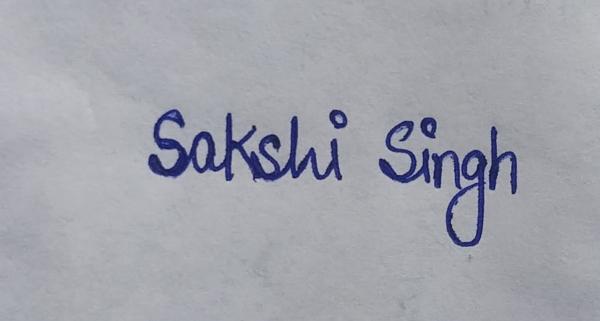 Sakshi Singh